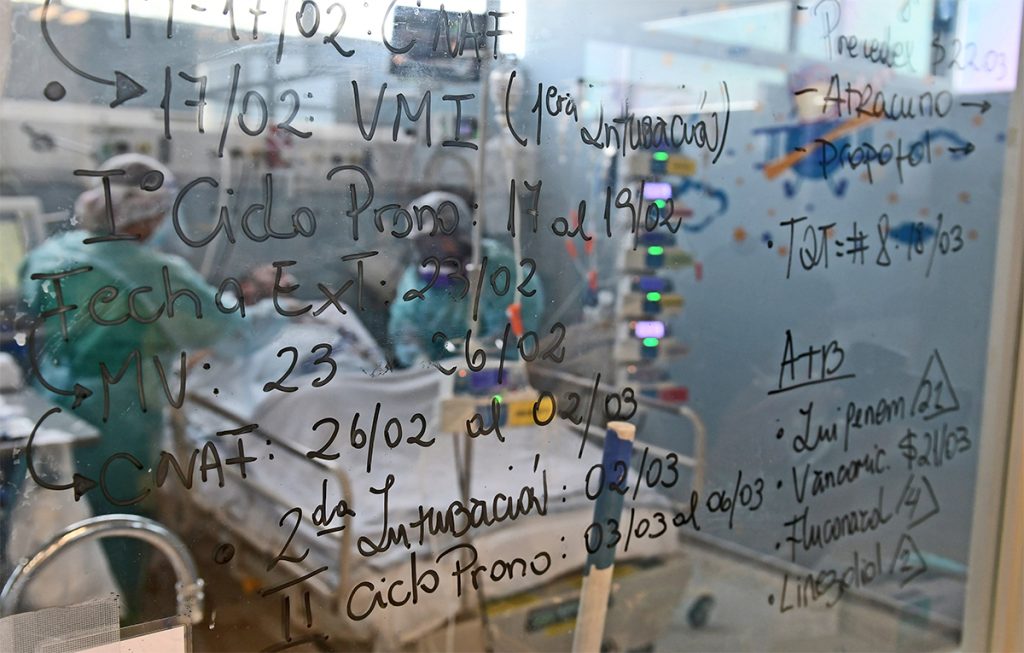 17/02: CNAF
17/02: VMI (1era Intubación)
I° Ciclo Prono: 17 al 19/02
Fecha Ext: 23/02
MV: 23 26/02
CNAF: 26/02 al 02/03
2da Intubación: 02/03
II Ciclo Prono: 03/03 al 06/03
Precedex $22.03
- Atracurio →
- Propofol →
• TQT = # 8 - 18/03
ATB
• Imipenem 21
• Vancomic. $ 21/03
• Fluconazol 4
• Linezolid 2